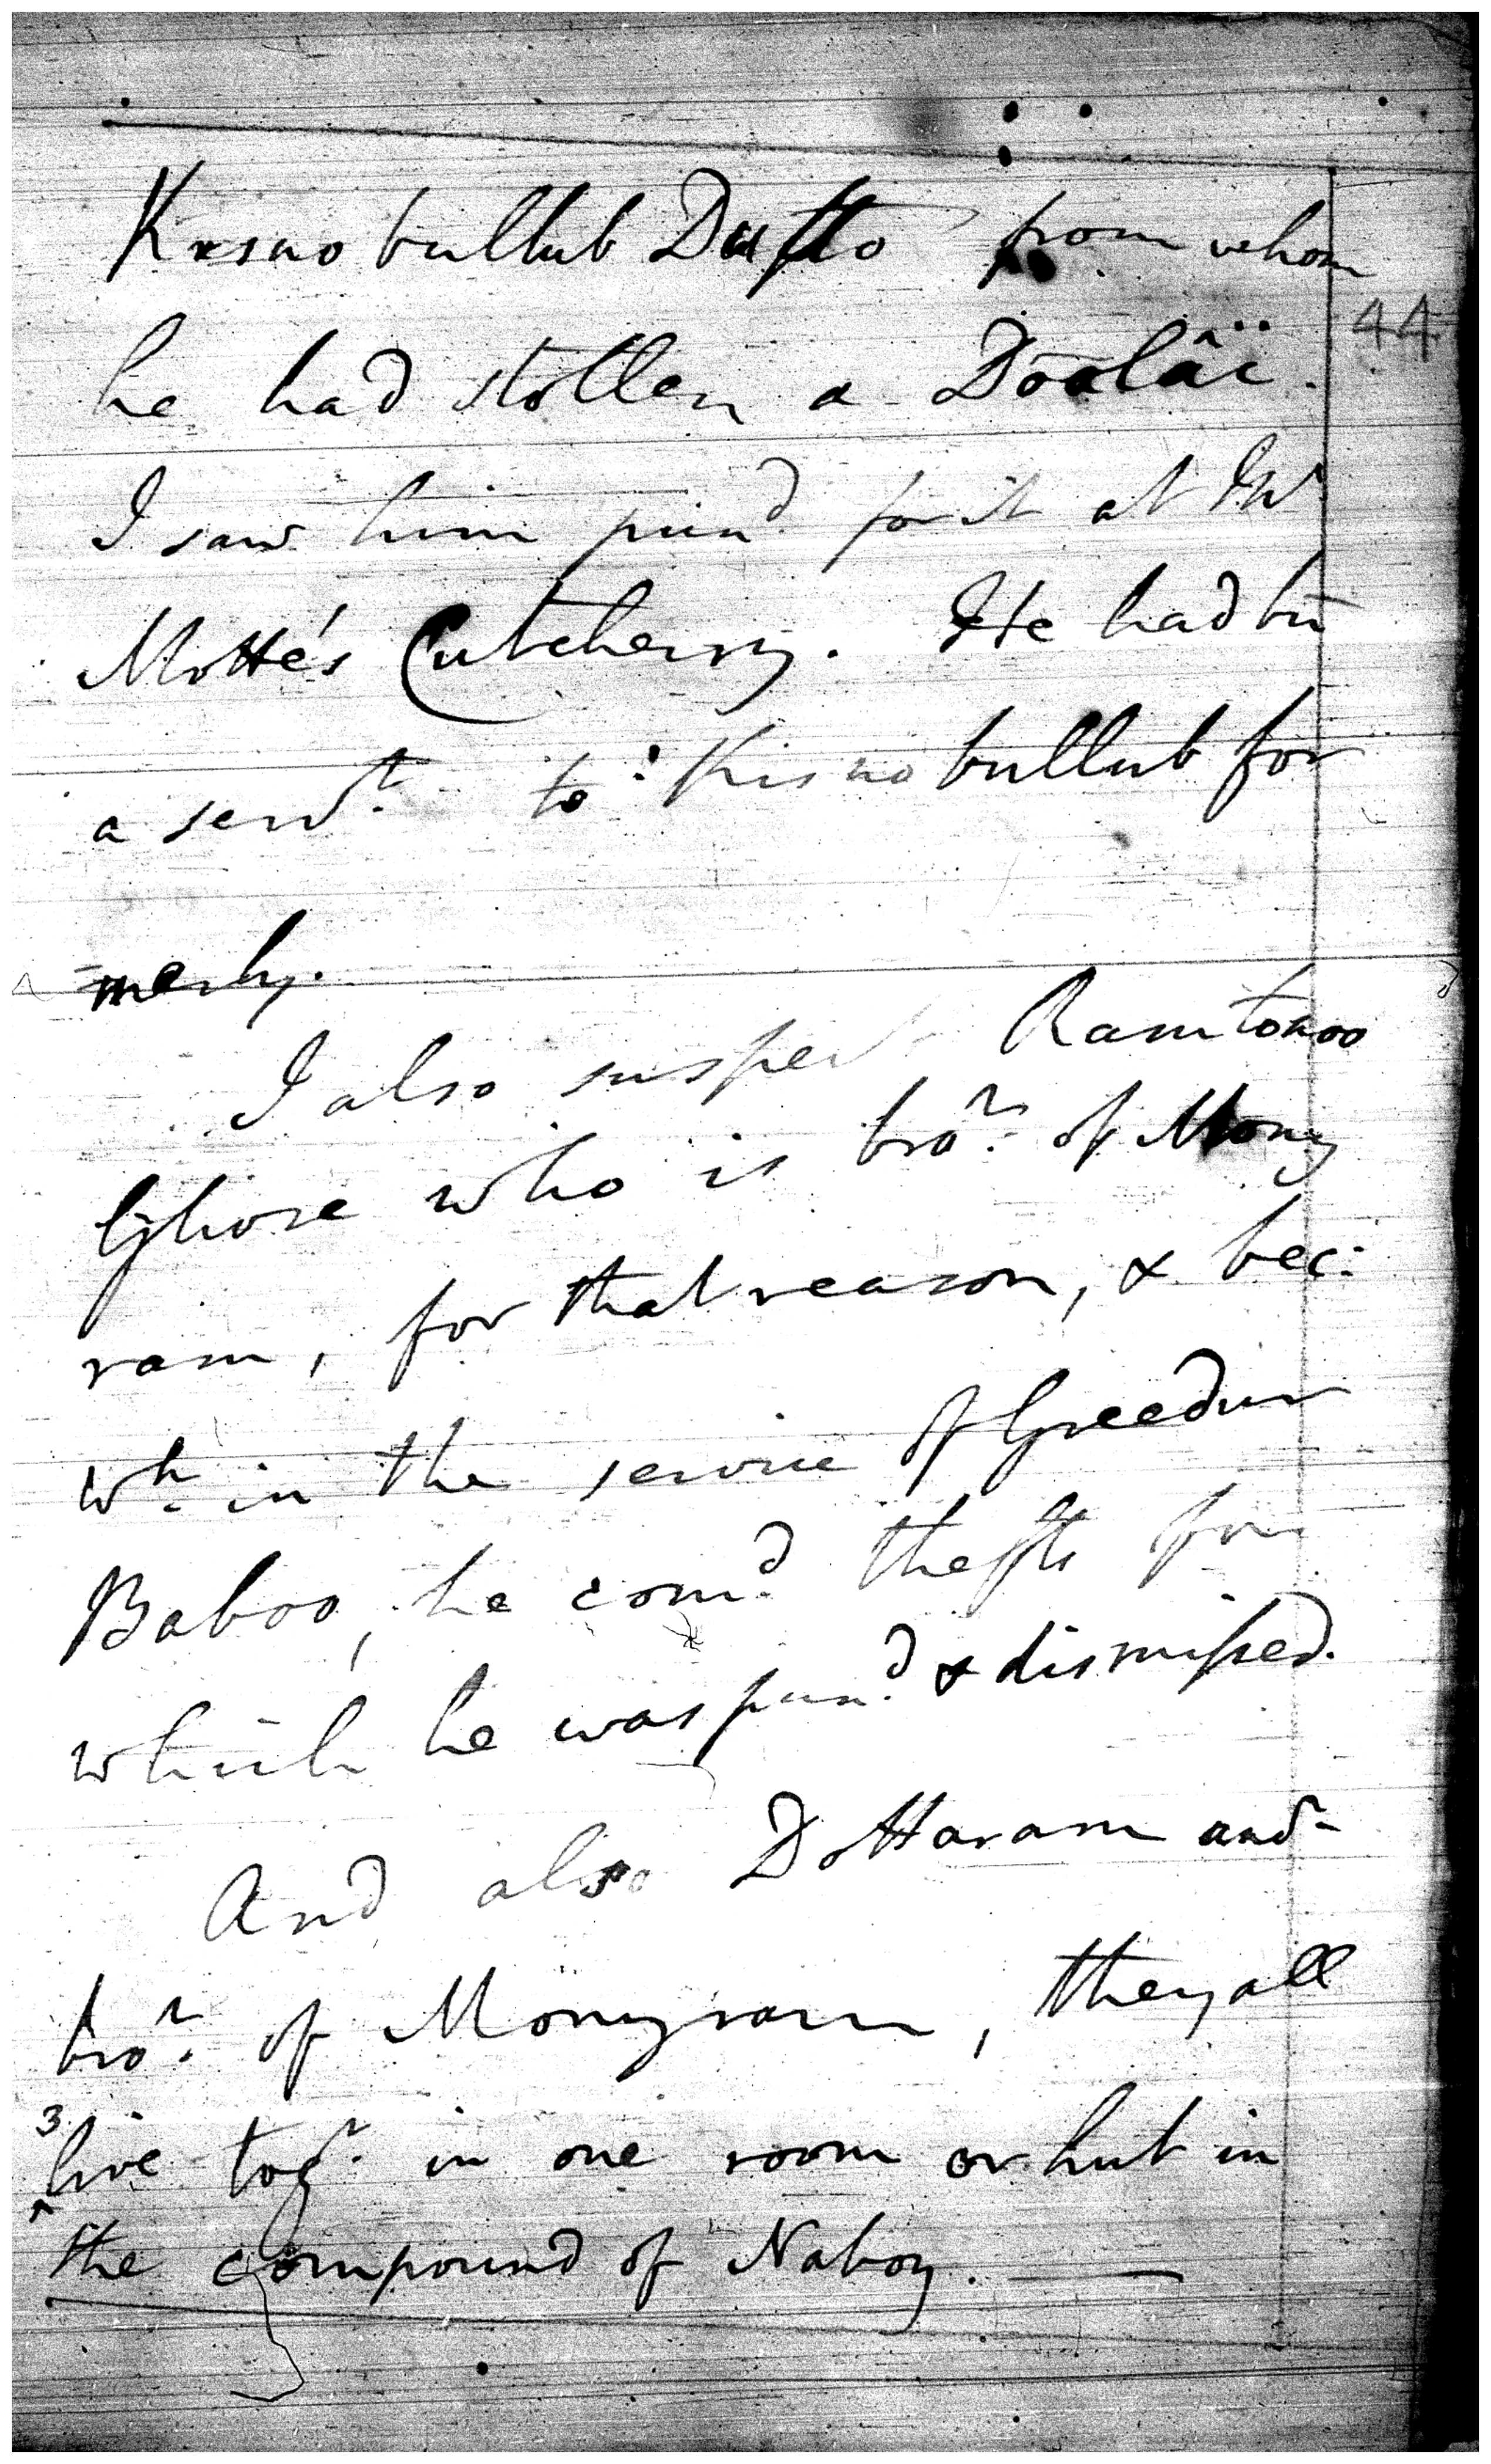 Kisno bullub Dutto from whom
44
he had stollen a Doolâi.
I saw him pund for it at Mr
Motte's Cutcherry. He had bn
a servt. to Kisno bullub for
merly.
I also suspect Ramtonoo
Ghose who is bror. of Mony
ram, for that reason, & bec:
wh. in the service of Greedur
Baboo, he comd. thefts for
which he was pund. & dismissed.
And also Dottaram anor
bror. of Monyram, they all
3
live togr. in one room or hut in
the compound of Naboy.